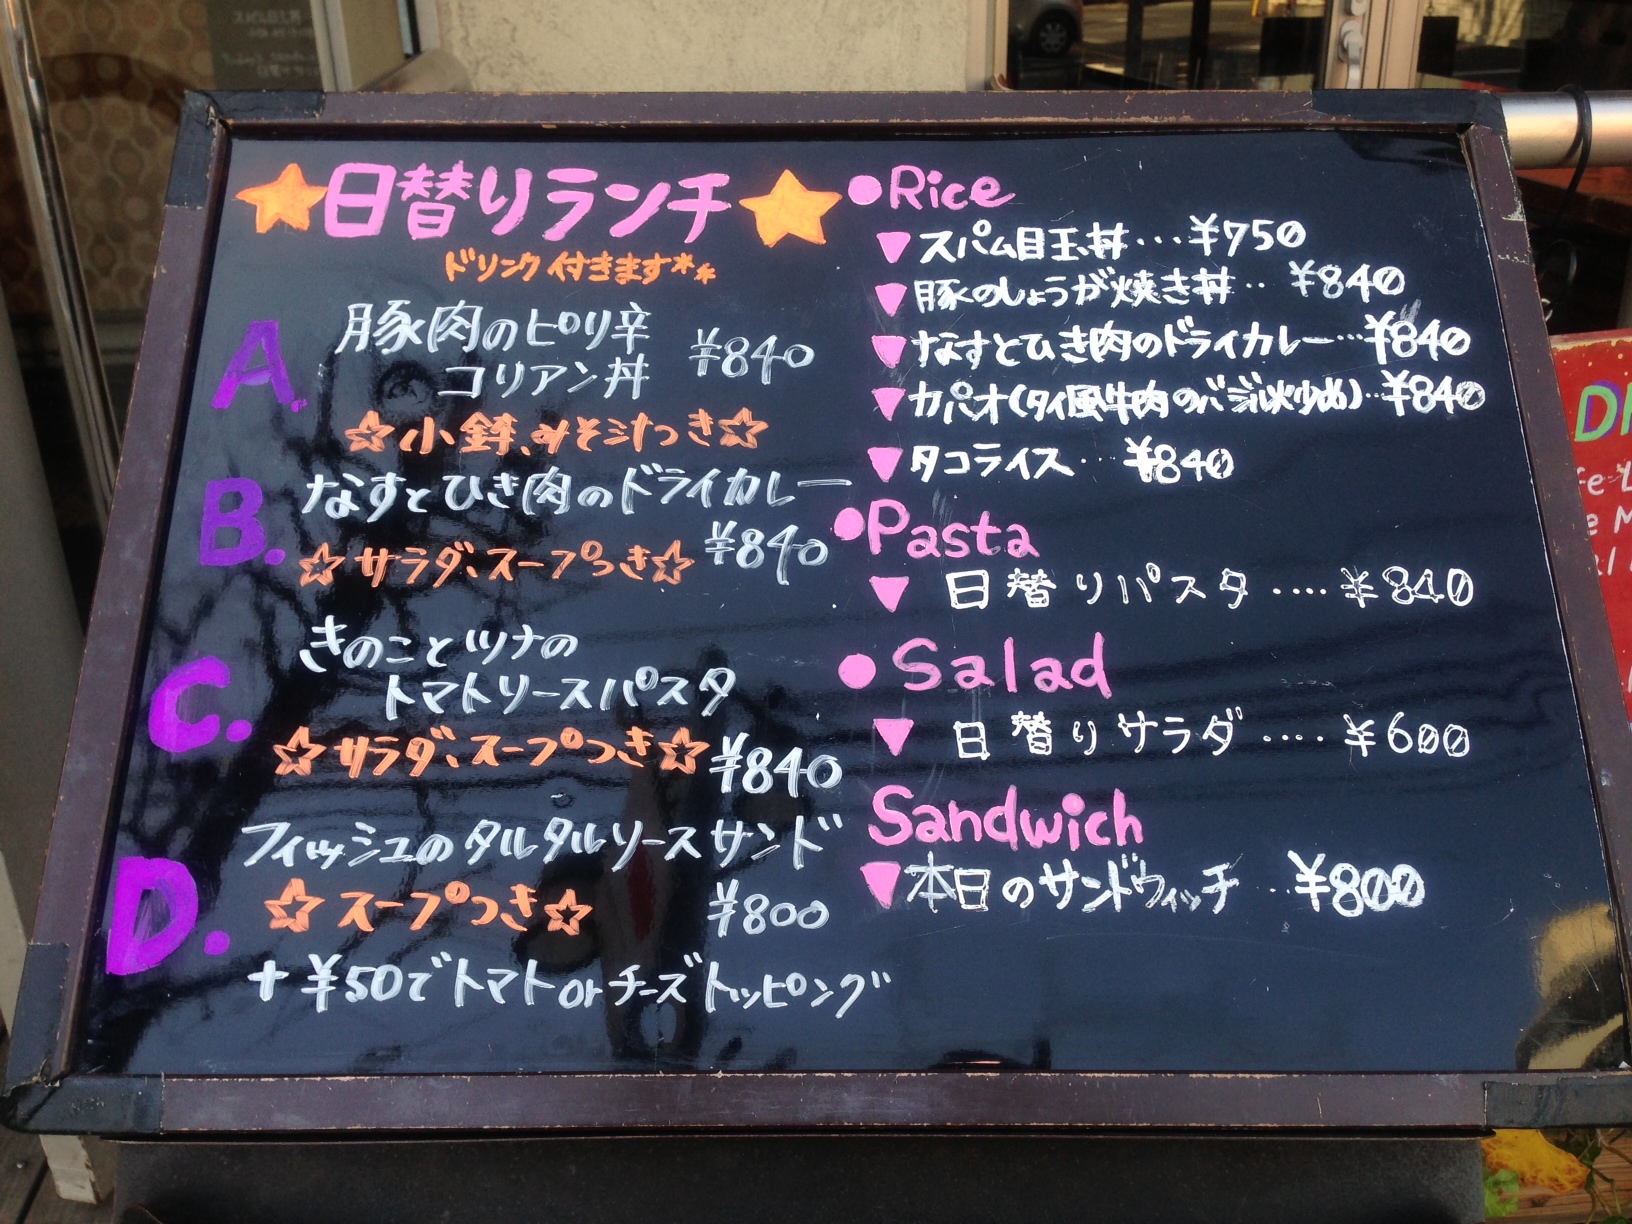 ★日替りランチ★
ドリンク付きます**
A.
豚肉のピリ辛
コリアン丼 ¥840
☆小鉢、みそ汁つき☆
B.
なすとひき肉のドライカレー
¥840
☆サラダ、スープつき☆
C.
きのことツナの
トマトソースパスタ
☆サラダ、スープつき☆
¥840
D.
フィッシュのタルタルソースサンド
☆スープつき☆ ¥800
+¥50でトマトorチーズトッピング
●Rice
▼スパム目玉丼...¥750
▼豚のしょうが焼き丼.. ¥840
▼なすとひき肉のドライカレー...¥840
▼ガパオ(タイ風牛肉のバジル炒め)..¥840
▼タコライス... ¥840
●Pasta
▼日替りパスタ....¥840
●Salad
▼日替りサラダ....¥600
Sandwich
▼本日のサンドウィッチ..¥800